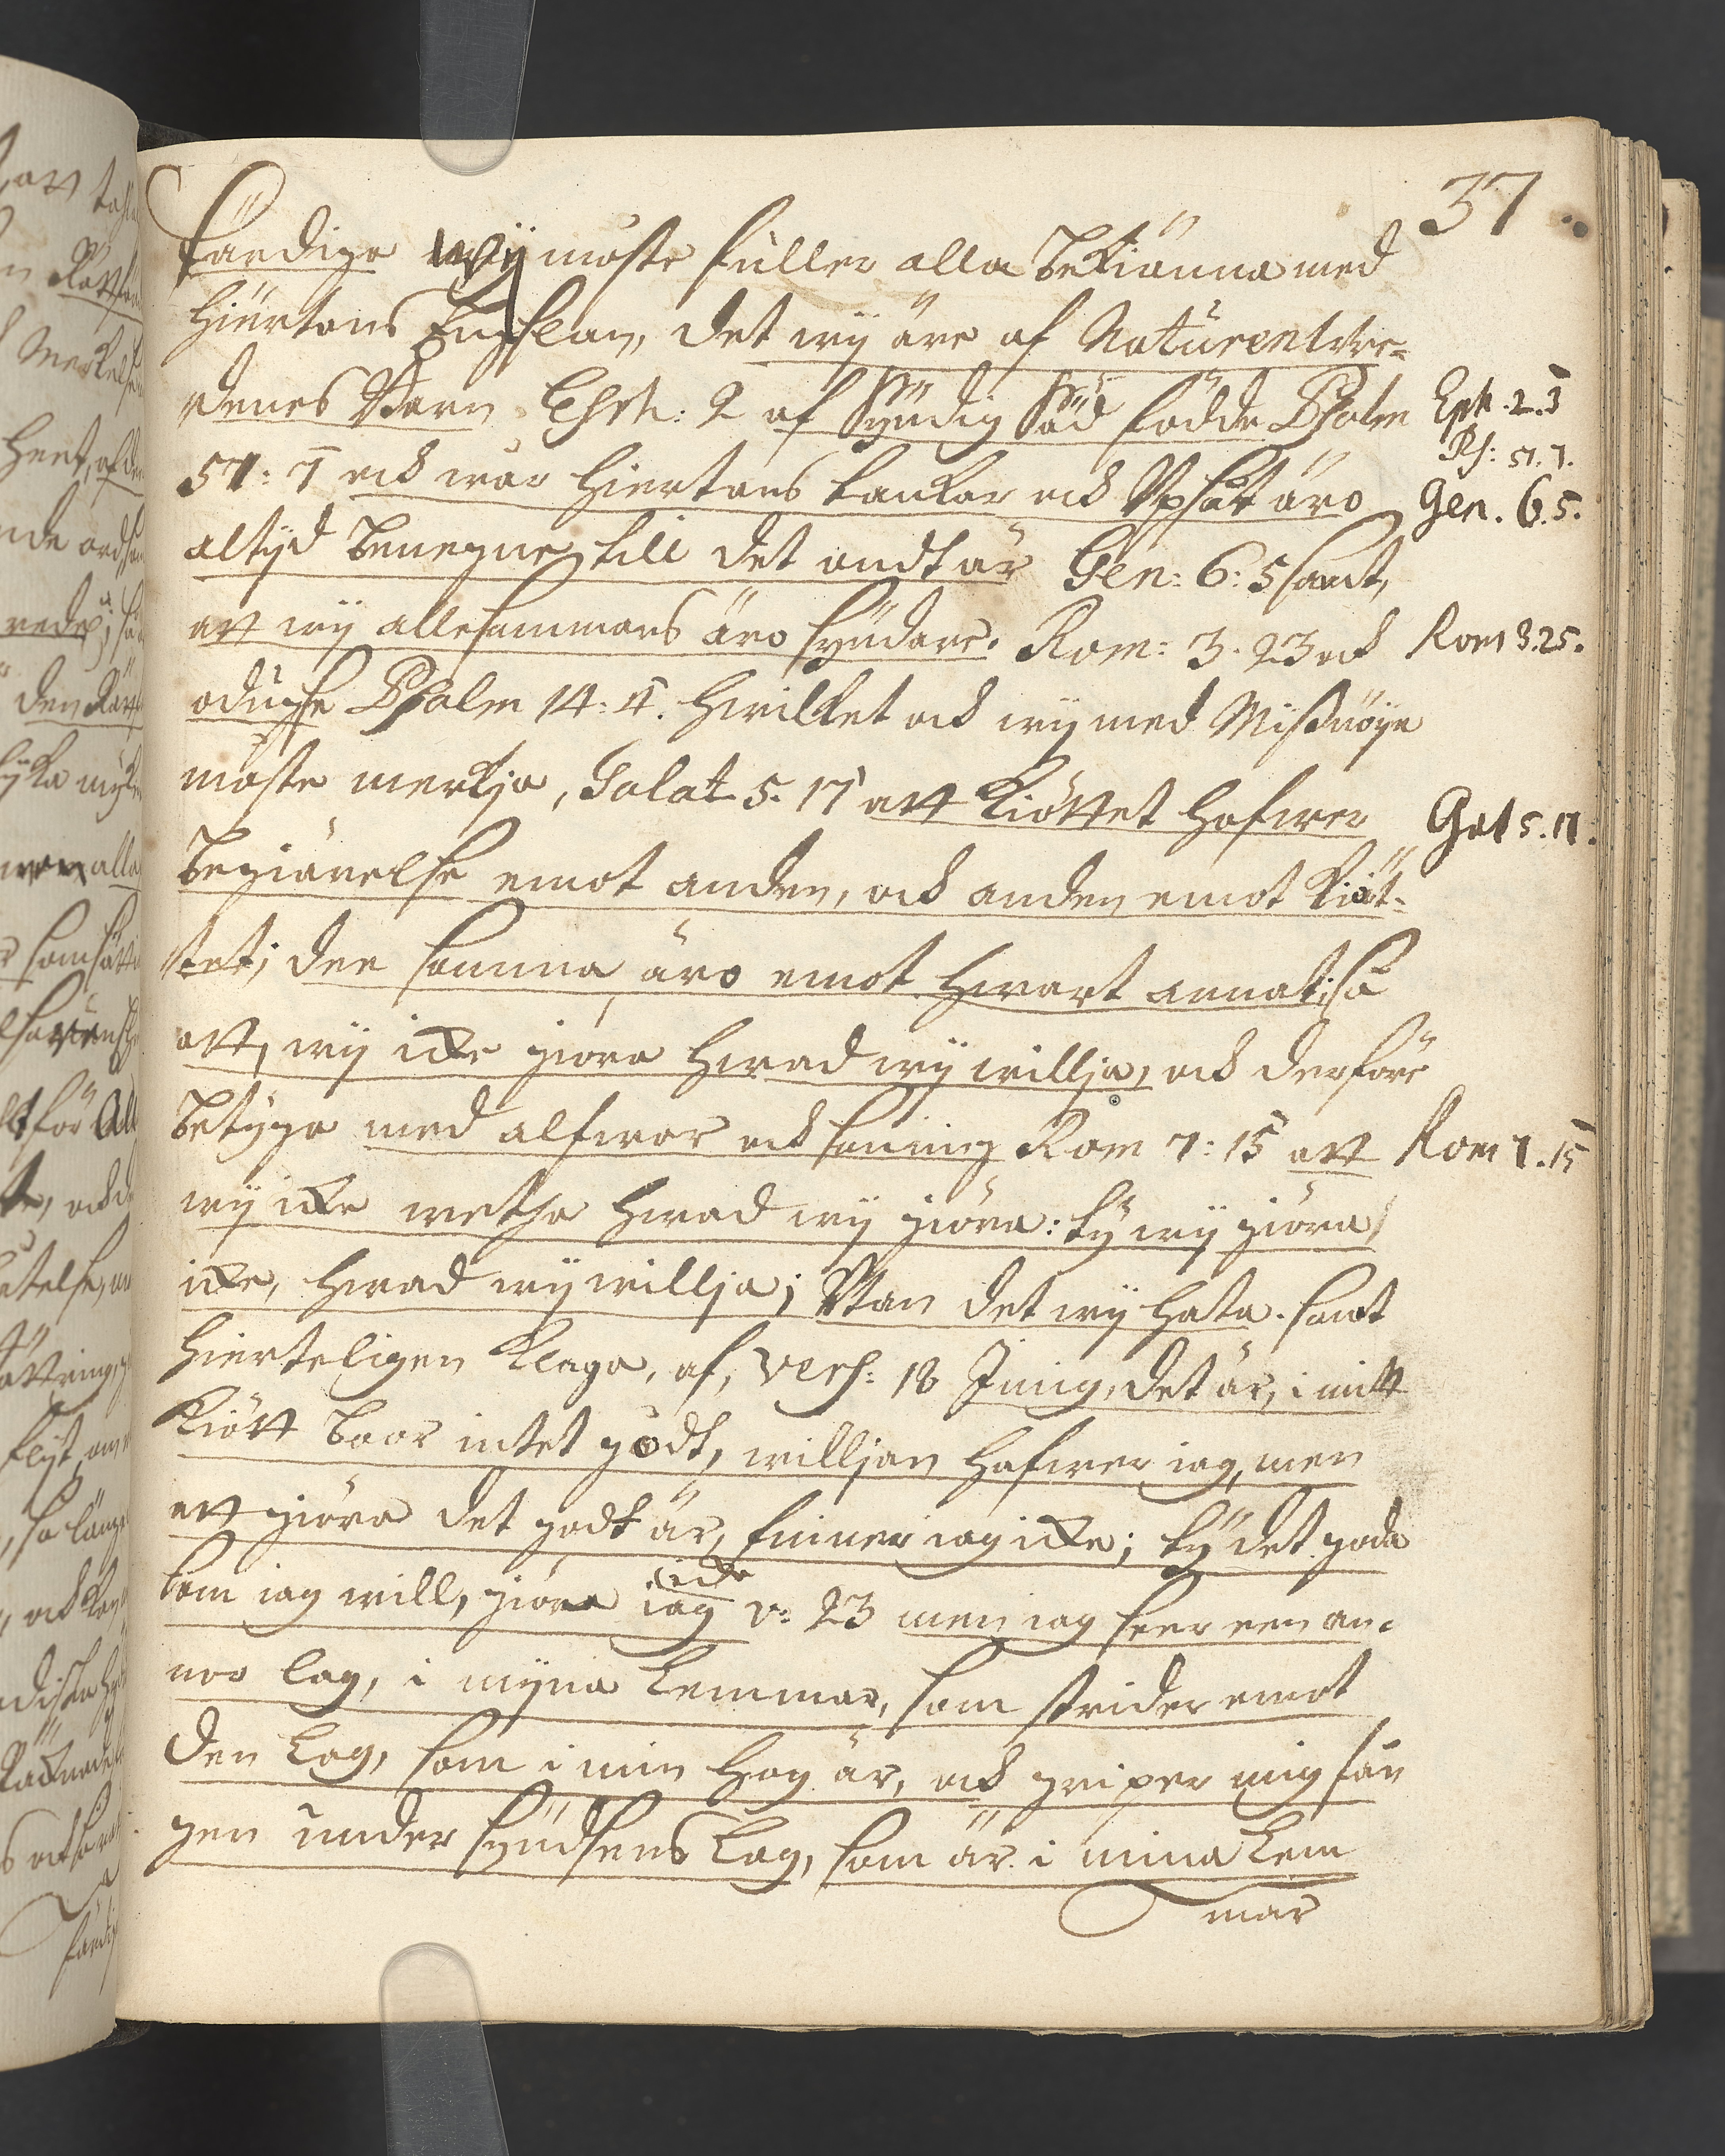 37
färdige wÿ måste füller alla bekiänna med
Hiertans Engslan, det wÿ äre af Naturen Wre-
denes Barn Ephe: 2 af Syndig Säd födde Psalm
51: 7 ock wår Hiertans tankar ock Upsåt äro
altÿd benegne till det ondt är Gen: 6: 5 samt,
at wÿ allesammans äro Syndare. Rom: 3. 23 ock
oduglse Psalm 14: 4. Hwilket ock wÿ med Missnöÿe
måste merkja, Galat 5. 17 att Kiöttet hafwer
begiärelse emot anden, ock anden emot Kiöt-
tet; dee samma äro emot hwart annat; så
att, wÿ icke giöra hwad wÿ willja, ock derföre
betÿga med alfwar ock saning Rom 7: 15 att
wÿ icke wetha hwad wÿ giöra: tÿ wÿ giöra
icke, hwad wÿ willja; Utan det wÿ hata. samt
Hierteligen klaga, af, Vers: 18 I mig, det är, i mitt
Kiött boor intet godt, willjan hafwer iag, men
att giöra det godt är, finner iag icke; tÿ det goda
som iag will, giöra iag icke v: 23 men iag seer een an-
nor lag, i mÿna Lemmar, som strider emot
den Lag, som i min Hog är, ock griper mig fån
gen under Syndsens Lag, som är i mina Lem
mar
Eph. 2. 3
Ps: 51. 7.
Gen. 6. 5.
Rom 3. 25.
Gal 5. 17.
Rom 7. 15